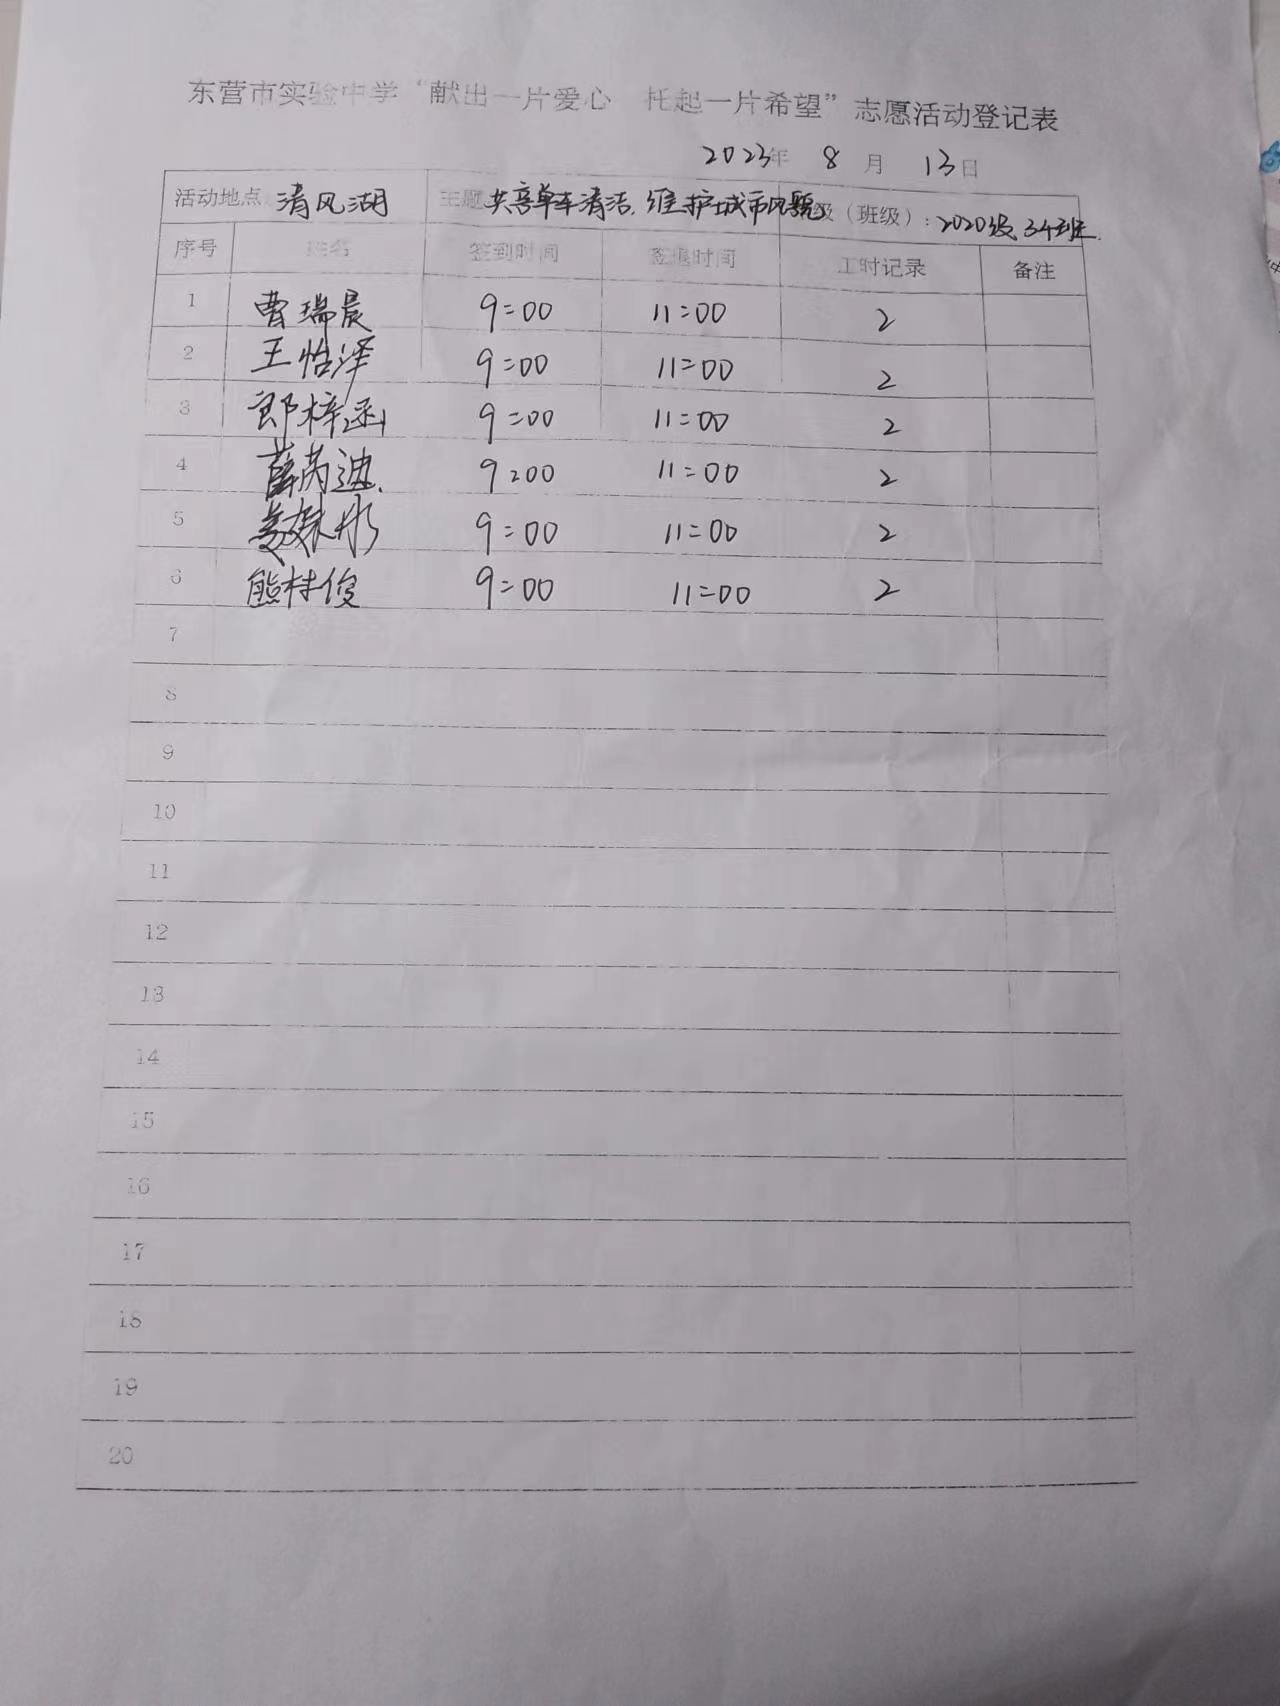 东营市实验中学“献出一片爱心 托起一片希望”志愿活动登记表
2023年 8 月 13日
活动地点 清风湖 主题 共享单车清洁,维护城市风貌 级（班级）：2020级34班.
序号 姓名 签到时间 签退时间 工时记录 备注
1 曹瑞晨 9:00 11:00 2
2 王怡泽 9:00 11:00 2
3 郎梓涵 9:00 11:00 2
4 薛芮迪 9:00 11:00 2
5 9:00 11:00 2
6 熊梓俊 9:00 11:00 2
7
8
9
10
11
12
13
14
15
16
17
18
19
20